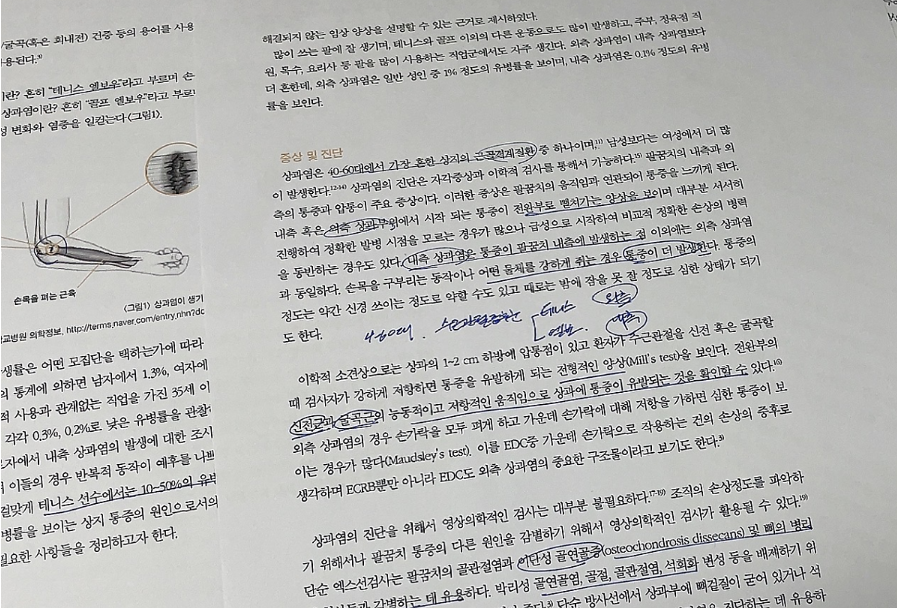 /굴곡(혹은 회내전) 건증 등의 용어를 사용
용된다.
이란? 흔히 "테니스 엘보우"라고 부르며 손
상과염이란? 흔히 "골프 엘보우"라고 부르
성 변화와 염증을 일컫는다(그림1).
손목을 펴는 근육
(그림1) 상과염이 생기
교병원 의학정보, http://terms.naver.com/entry.nhn?dc
생률은 어떤 모집단을 택하는가에 따라
의 통계에 의하면 남자에서 1.3%, 여자에
적 사용과 관계없는 직업을 가진 35세 이
각각 0.3%, 0.2%로 낮은 유병률을 관찰
자에서 내측 상과염의 발생에 대한 조사
이들의 경우 반복적 동작이 예후를 나쁘
걸맞게 테니스 선수에서는 10~50%의 유병
병률을 보이는 상지 통증의 원인으로서의
필요한 사항들을 정리하고자 한다.
해결되지 않는 임상 양상을 설명할 수 있는 근거로 제시하였다.
많이 쓰는 팔에 잘 생기며, 테니스와 골프 이외의 다른 운동으로도 많이 발생하고, 주부, 정육점 직
원, 목수, 요리사 등 팔을 많이 사용하는 직업군에서도 자주 생긴다. 외측 상과염이 내측 상과염보다
더 흔한데, 외측 상과염은 일반 성인 중 1% 정도의 유병률을 보이며, 내측 상과염은 0.1% 정도의 유병
률을 보인다.
증상 및 진단
상과염은 40-60대에서 가장 흔한 상지의 근골격계질환 중 하나이며, 남성보다는 여성에서 더 많
이 발생한다. 상과염의 진단은 자각증상과 이학적 검사를 통해서 가능하다. 팔꿈치의 내측과 외
측의 통증과 압통이 주요 증상이다. 이러한 증상은 팔꿈치의 움직임과 연관되어 통증을 느끼게 된다.
내측 혹은 외측 상과부위에서 시작 되는 통증이 전완부로 뻗쳐가는 양상을 보이며 대부분 서서히
진행하여 정확한 발병 시점을 모르는 경우가 많으나 급성으로 시작하여 비교적 정확한 손상의 병력
을 동반하는 경우도 있다. 내측 상과염은 통증이 팔꿈치 내측에 발생하는 점 이외에는 외측 상과염
과 동일하다. 손목을 구부리는 동작이나 어떤 물체를 강하게 쥐는 경우 통증이 더 발생한다. 통증의
정도는 약간 신경 쓰이는 정도로 약할 수도 있고 때로는 밤에 잠을 못 잘 정도로 심한 상태가 되기
도 한다.
이학적 소견상으로는 상과의 1~2 cm 하방에 압통점이 있고 환자가 수근관절을 신전 혹은 굴곡할
때 검사자가 강하게 저항하면 통증을 유발하게 되는 전형적인 양상(Mill's test)을 보인다. 전완부의
신전근과 굴곡근의 능동적이고 저항적인 움직임으로 상과에 통증이 유발되는 것을 확인할 수 있다.
외측 상과염의 경우 손가락을 모두 펴게 하고 가운데 손가락에 대해 저항을 가하면 심한 통증이 보
이는 경우가 많다(Maudsley's test). 이를 EDC중 가운데 손가락으로 작용하는 건의 손상의 증후로
생각하며 ECRB뿐만 아니라 EDC도 외측 상과염의 중요한 구조물이라고 보기도 한다.
상과염의 진단을 위해서 영상의학적인 검사는 대부분 불필요하다. 조직의 손상정도를 파악하
기 위해서나 팔꿈치 통증의 다른 원인을 감별하기 위해서 영상의학적인 검사가 활용될 수 있다.
단순 엑스선검사는 팔꿈치의 골관절염과 이단성 골연골증(osteochondrosis dissecans) 및 뼈의 병리
감별하는 데 유용하다. 박리성 골연골염, 골절, 골관절염, 석회화 변성 등을 배제하기 위
단순 방사선에서 상과부에 뼈겹질이 굳어 있거나 석
진단하는 데 유용하